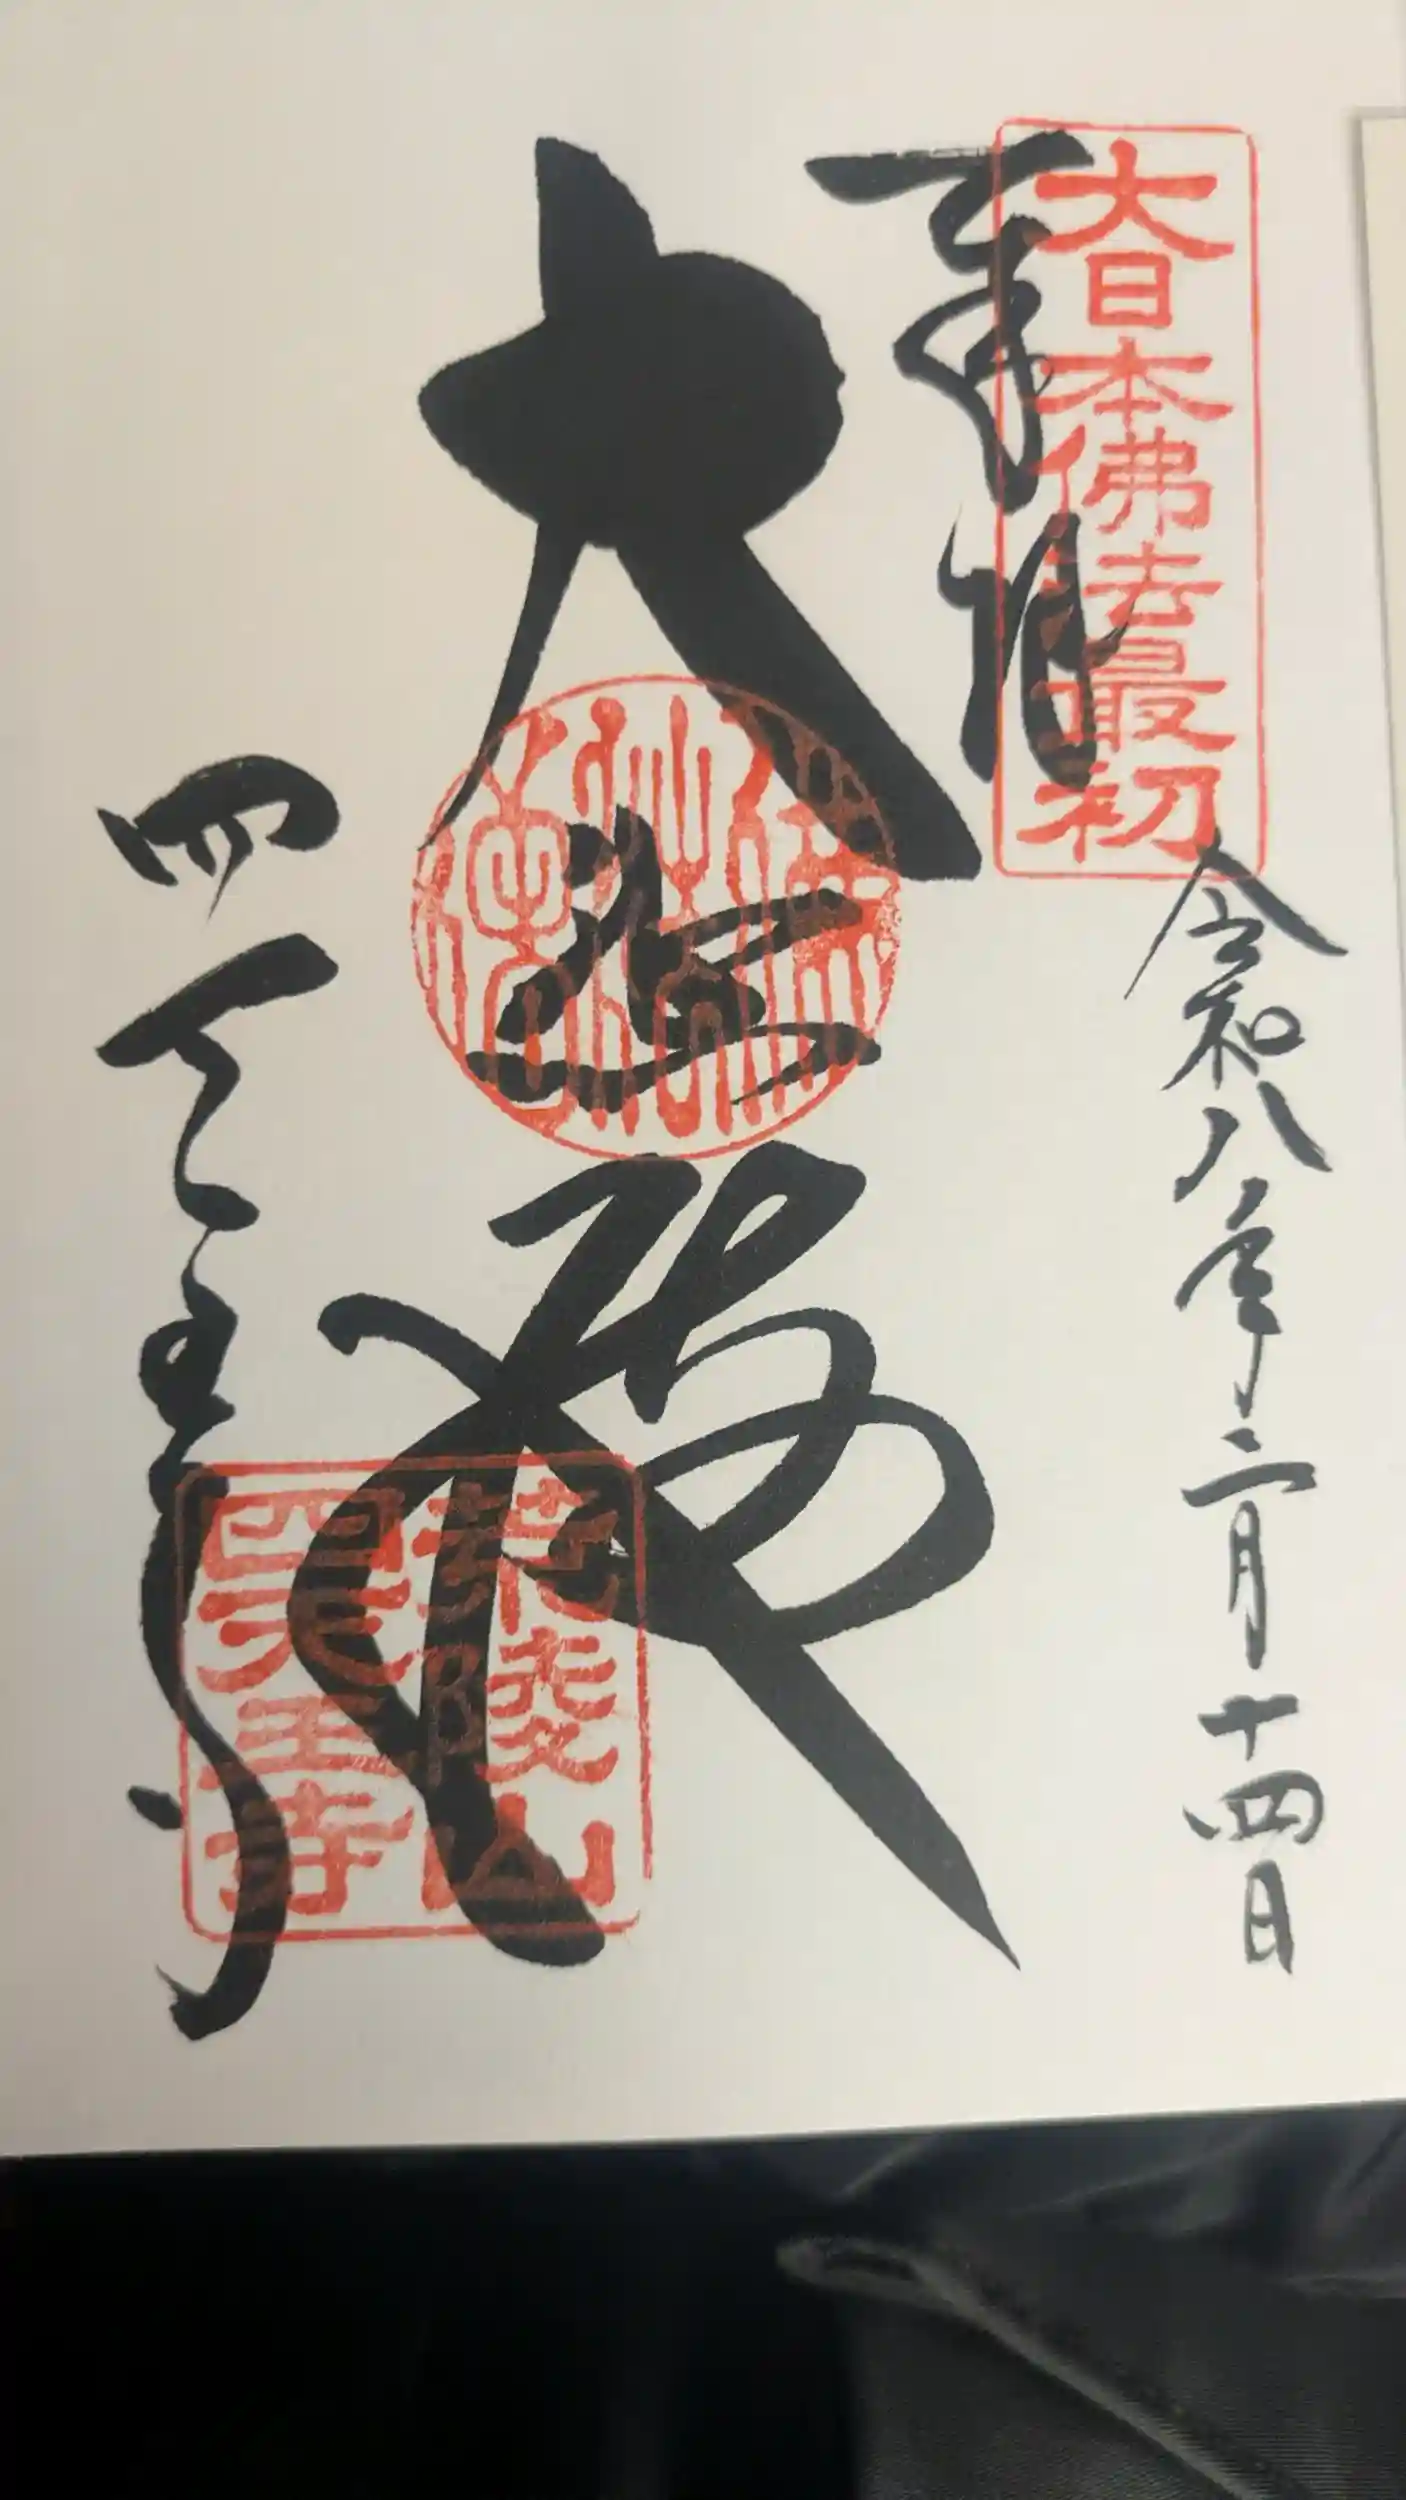 大日本佛法最初
奉拜
令和八年二月十四日
大悲殿
四天王寺
荒陵山
四天王寺